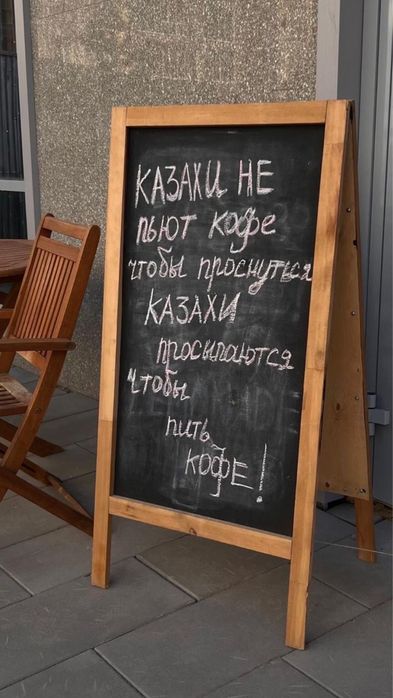 КАЗАХИ НЕ
пьют кофе
чтобы проснуться
КАЗАХИ
просыпаются
чтобы
пить
КОФЕ!